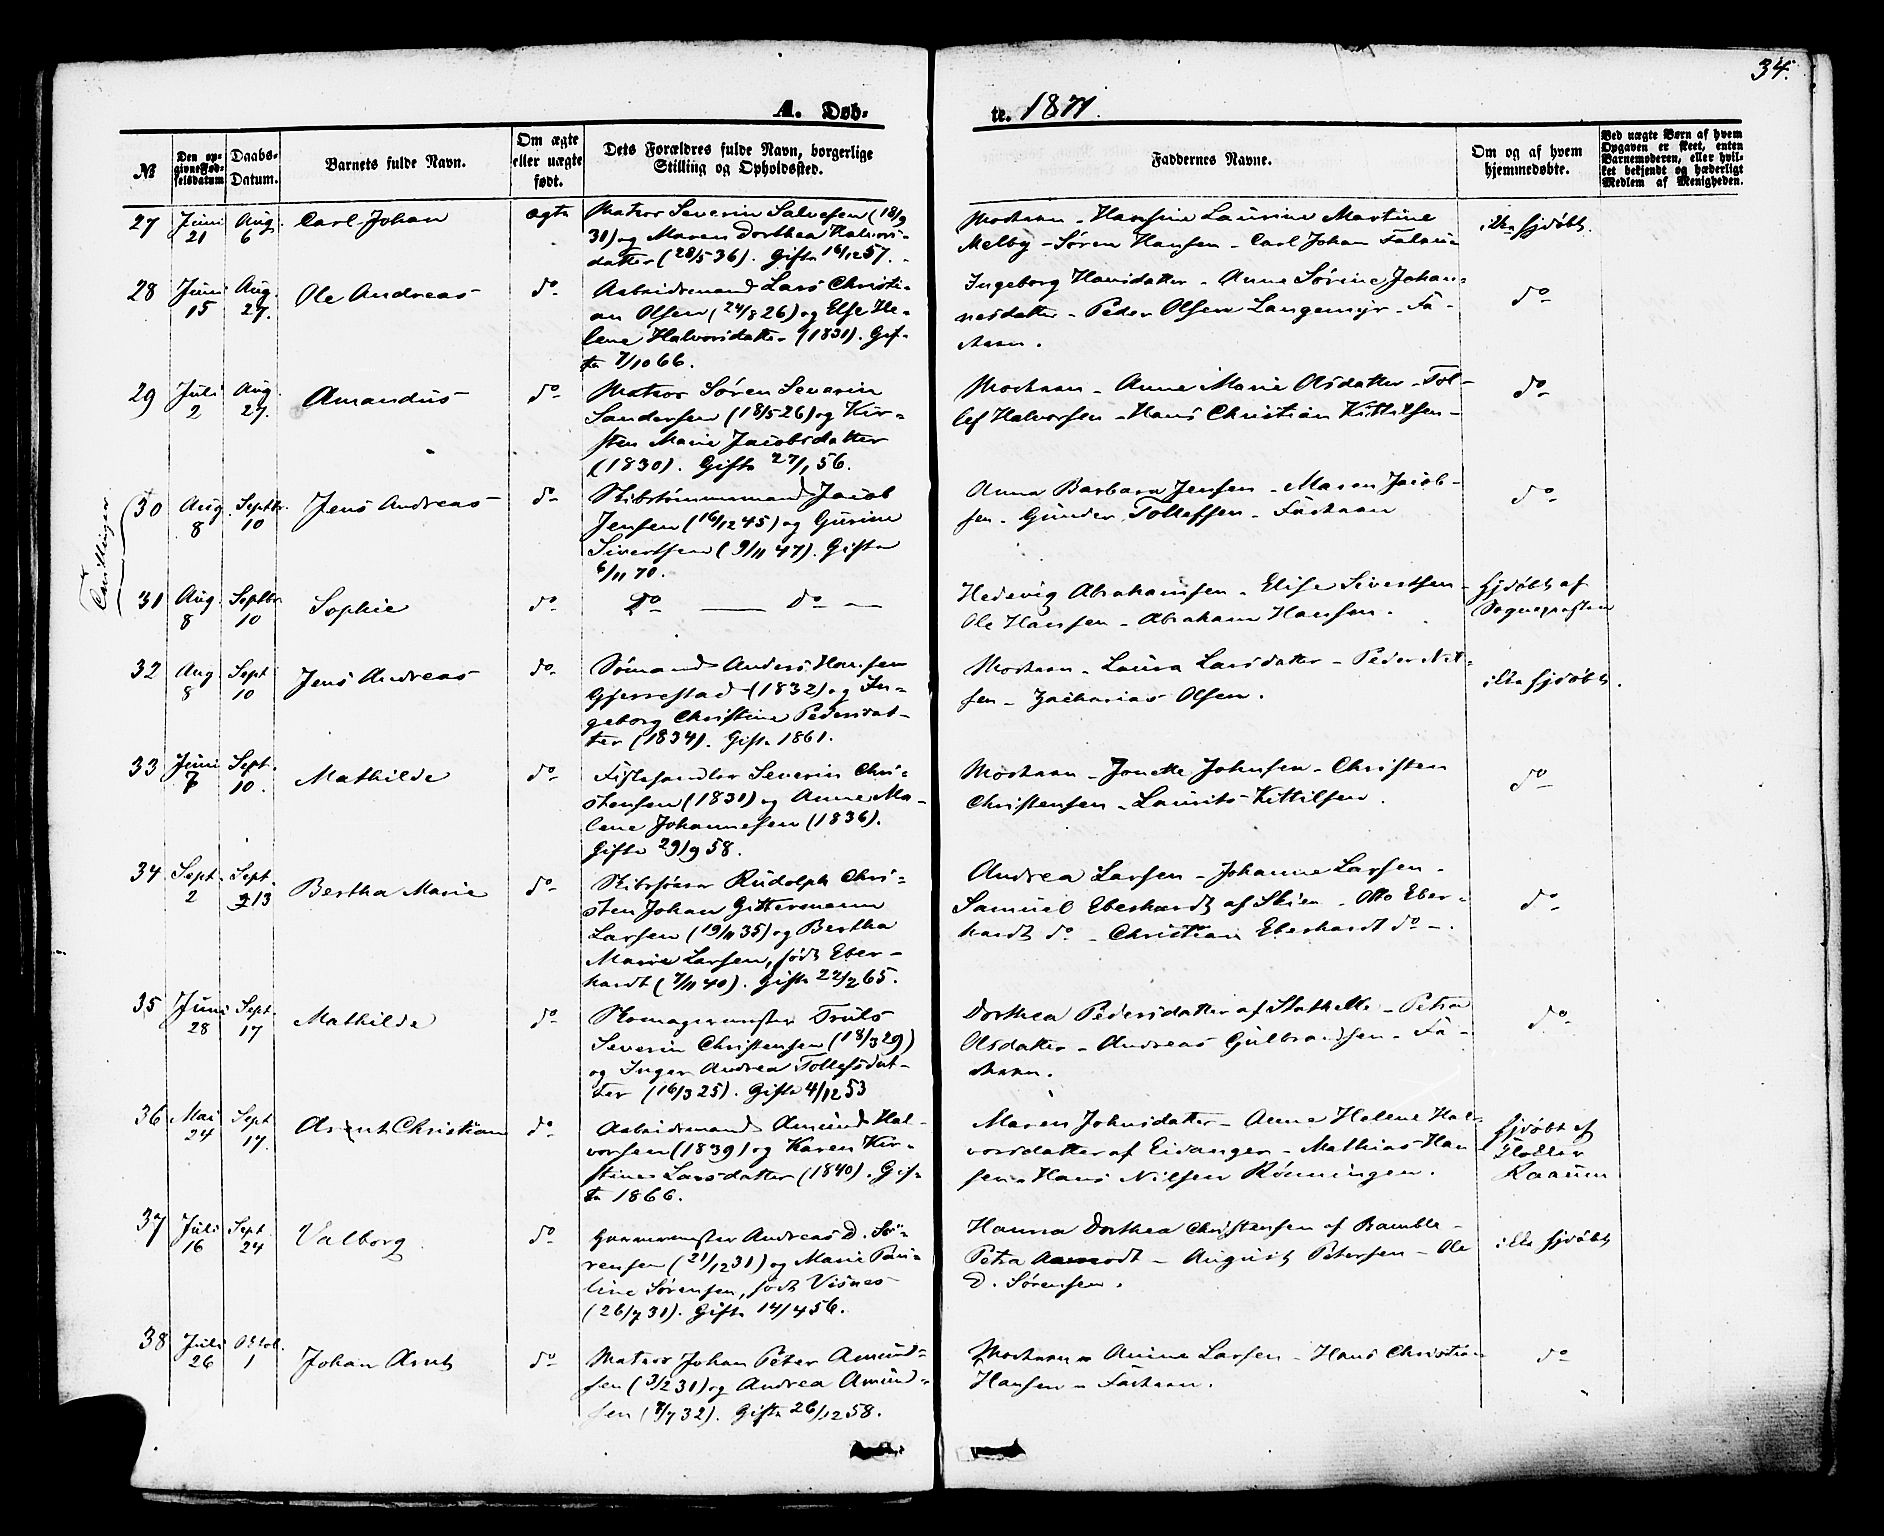 34.
A. Døb-
te. 1871.
№
Den op-
givne Fød-
selsdatum
Daabs-
Datum.
Barnets fulde Navn.
Om ægte
eller uægte
født.
Dets Forældres fulde Navn, borgerlige
Stilling og Opholdssted.
Faddernes Navne.
Om og af hvem
hjemmedøbte.
Ved uægte Børn af hvem
Opgaven er skeet, enten
Barnemoderen, eller hvil-
ket bekjendt og hæderligt
Medlem af Menigheden.
27 Juni 21 Aug. 6 Carl Johan ægte
Matros Severin Salvesen (18/9
31) og Maren Dorthea Halvors-
datter (28/5 36). Gifte 16/12 57.
Moderen - Hansine Laurine Martine
Melby - Søren Hansen - Carl Johan
ikke hjdøbt.
28 Juni 15 Aug. 27. Ole Andreas do
Arbeidsmand Lars Christi-
an Olsen (24/8 26) og Else He-
lene Halvorsdatter (1831). Gif-
te 7/10 66.
Ingeborg Hansdatter - Anne Sørine Johan-
nesdatter - Peder Olsen Langemyr - Fa-
deren.
do
29 Juli 2 Aug. 27. Amandus do
Matros Søren Severin
Sandersen (18/5 26) og Kir-
sten Marie Jacobsdatter
(1830). Gifte 27/1 56.
Moderen - Anne Marie Olsdatter - Tol-
lef Halvorsen - Hans Christian Kittilsen -
do
Tvillinger
30 Aug. 8 Septbr. 10 Jens Andreas do
Skibstømmermand Jacob
Jensen (16/12 45) og Gurine
Sivertsen (9/11 47). Gifte
6/11 70.
Anna Barbara Jensen - Maren Jacob-
sen - Gunder Tollefsen - Faderen
do
31 Aug. 8 Septbr. 10 Sophie do
do — do —
Hedevig Abrahamsen - Elise Sivertsen -
Ole Hansen - Abraham Hansen.
hjdøbt af
Sognepresten
32 Aug. 8 Sept. 10 Jens Andreas do
Sømand Anders Hansen
Gjerrestad (1832) og In-
geborg Christine Pedersdat-
ter (1834). Gifte 1861.
Moderen - Laura Larsdatter - Peder Niel-
sen - Zacharias Olsen.
ikke hjdøbt.
33 Juni 7 Sept. 10. Mathilde do
Fiskehandler Severin Chri-
stensen (1831) og Anne Ma-
lene Johannesen (1836).
Gifte 29/9 58.
Moderen - Jonette Johnsen - Christen
Christensen - Laurits Kittilsen.
do
34 Sept. 2 Sept. 13 Bertha Marie do
Skibsfører Rudolph Chri-
sten Johan Gittermann
Larsen (19/11 35) og Bertha
Marie Larsen, født Eber-
hardt (7/11 40). Gifte 22/2 65.
Andrea Larsen - Johanne Larsen -
Samuel Eberhardt af Skien - Otto Eber-
hardt do - Christian Eberhardt do -.
do
35 Juni 28 Sept. 17 Mathilde do
Skomagermester Truls
Severin Christensen (18/3 29)
og Inger Andrea Tollefsdat-
ter (16/3 25). Gifte 4/12 53
Dorthea Pedersdatter af Stathelle - Petra
Olsdatter - Andreas Gulbrandsen - Fa-
deren.
do
36 Mai 24 Sept. 17. Arent Christian do
Arbeidsmand Amund Hal-
vorsen (1839) og Karen Kir-
stine Larsdatter (1840). Gif-
te 1866.
Maren Johnsdatter - Anne Helene Hal-
vorsdatter af Eidanger - Mathias Han-
sen - Hans Nilsen Rønningen.
hjdøbt af
Raaum
37 Juli 16 Sept. 24 Valborg do
Garvermester Andreas D. Sø-
rensen (21/12 31) og Marie Pau-
line Sørensen, født Visnes
(26/7 31). Gifte 14/4 56.
Hanna Dorthea Christensen af Bamble -
Petra Aamodt - August Petersen - Ole
D. Sørensen.
ikke hjdøbt
38 Juli 26 Oktob. 1 Johan Arnt do
Matros Johan Peter Amund-
sen (3/2 31) og Andrea Amund-
sen (8/7 32). Gifte 26/12 58.
Moderen - Anine Larsen - Hans Christian
Hansen - Faderen.
do